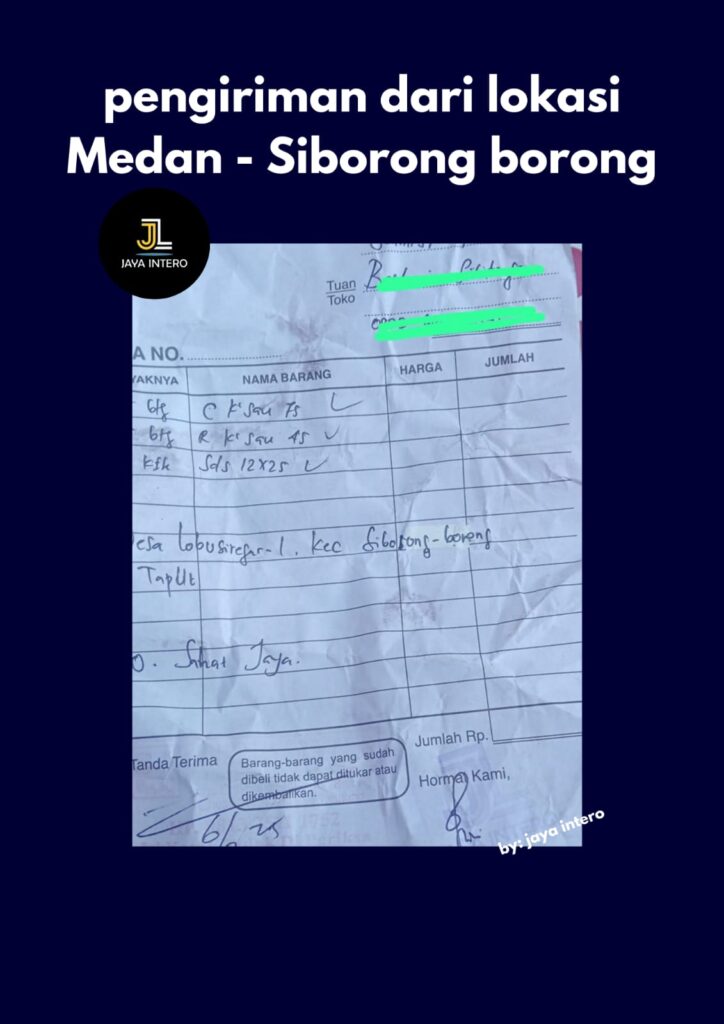 pengiriman dari lokasi
Medan - Siborong borong
JL
JAYA INTERO
Tuan
Toko
A NO.
YAKNYA NAMA BARANG HARGA JUMLAH
btg C
btg R
Sds 12x25
esa Lobusiregar-1. Kec Siborong-borong
Taput
Jaya.
Jumlah Rp.
Tanda Terima
Barang-barang yang sudah
dibeli tidak dapat ditukar atau
dikembalikan.
Hormat Kami,
by: jaya intero